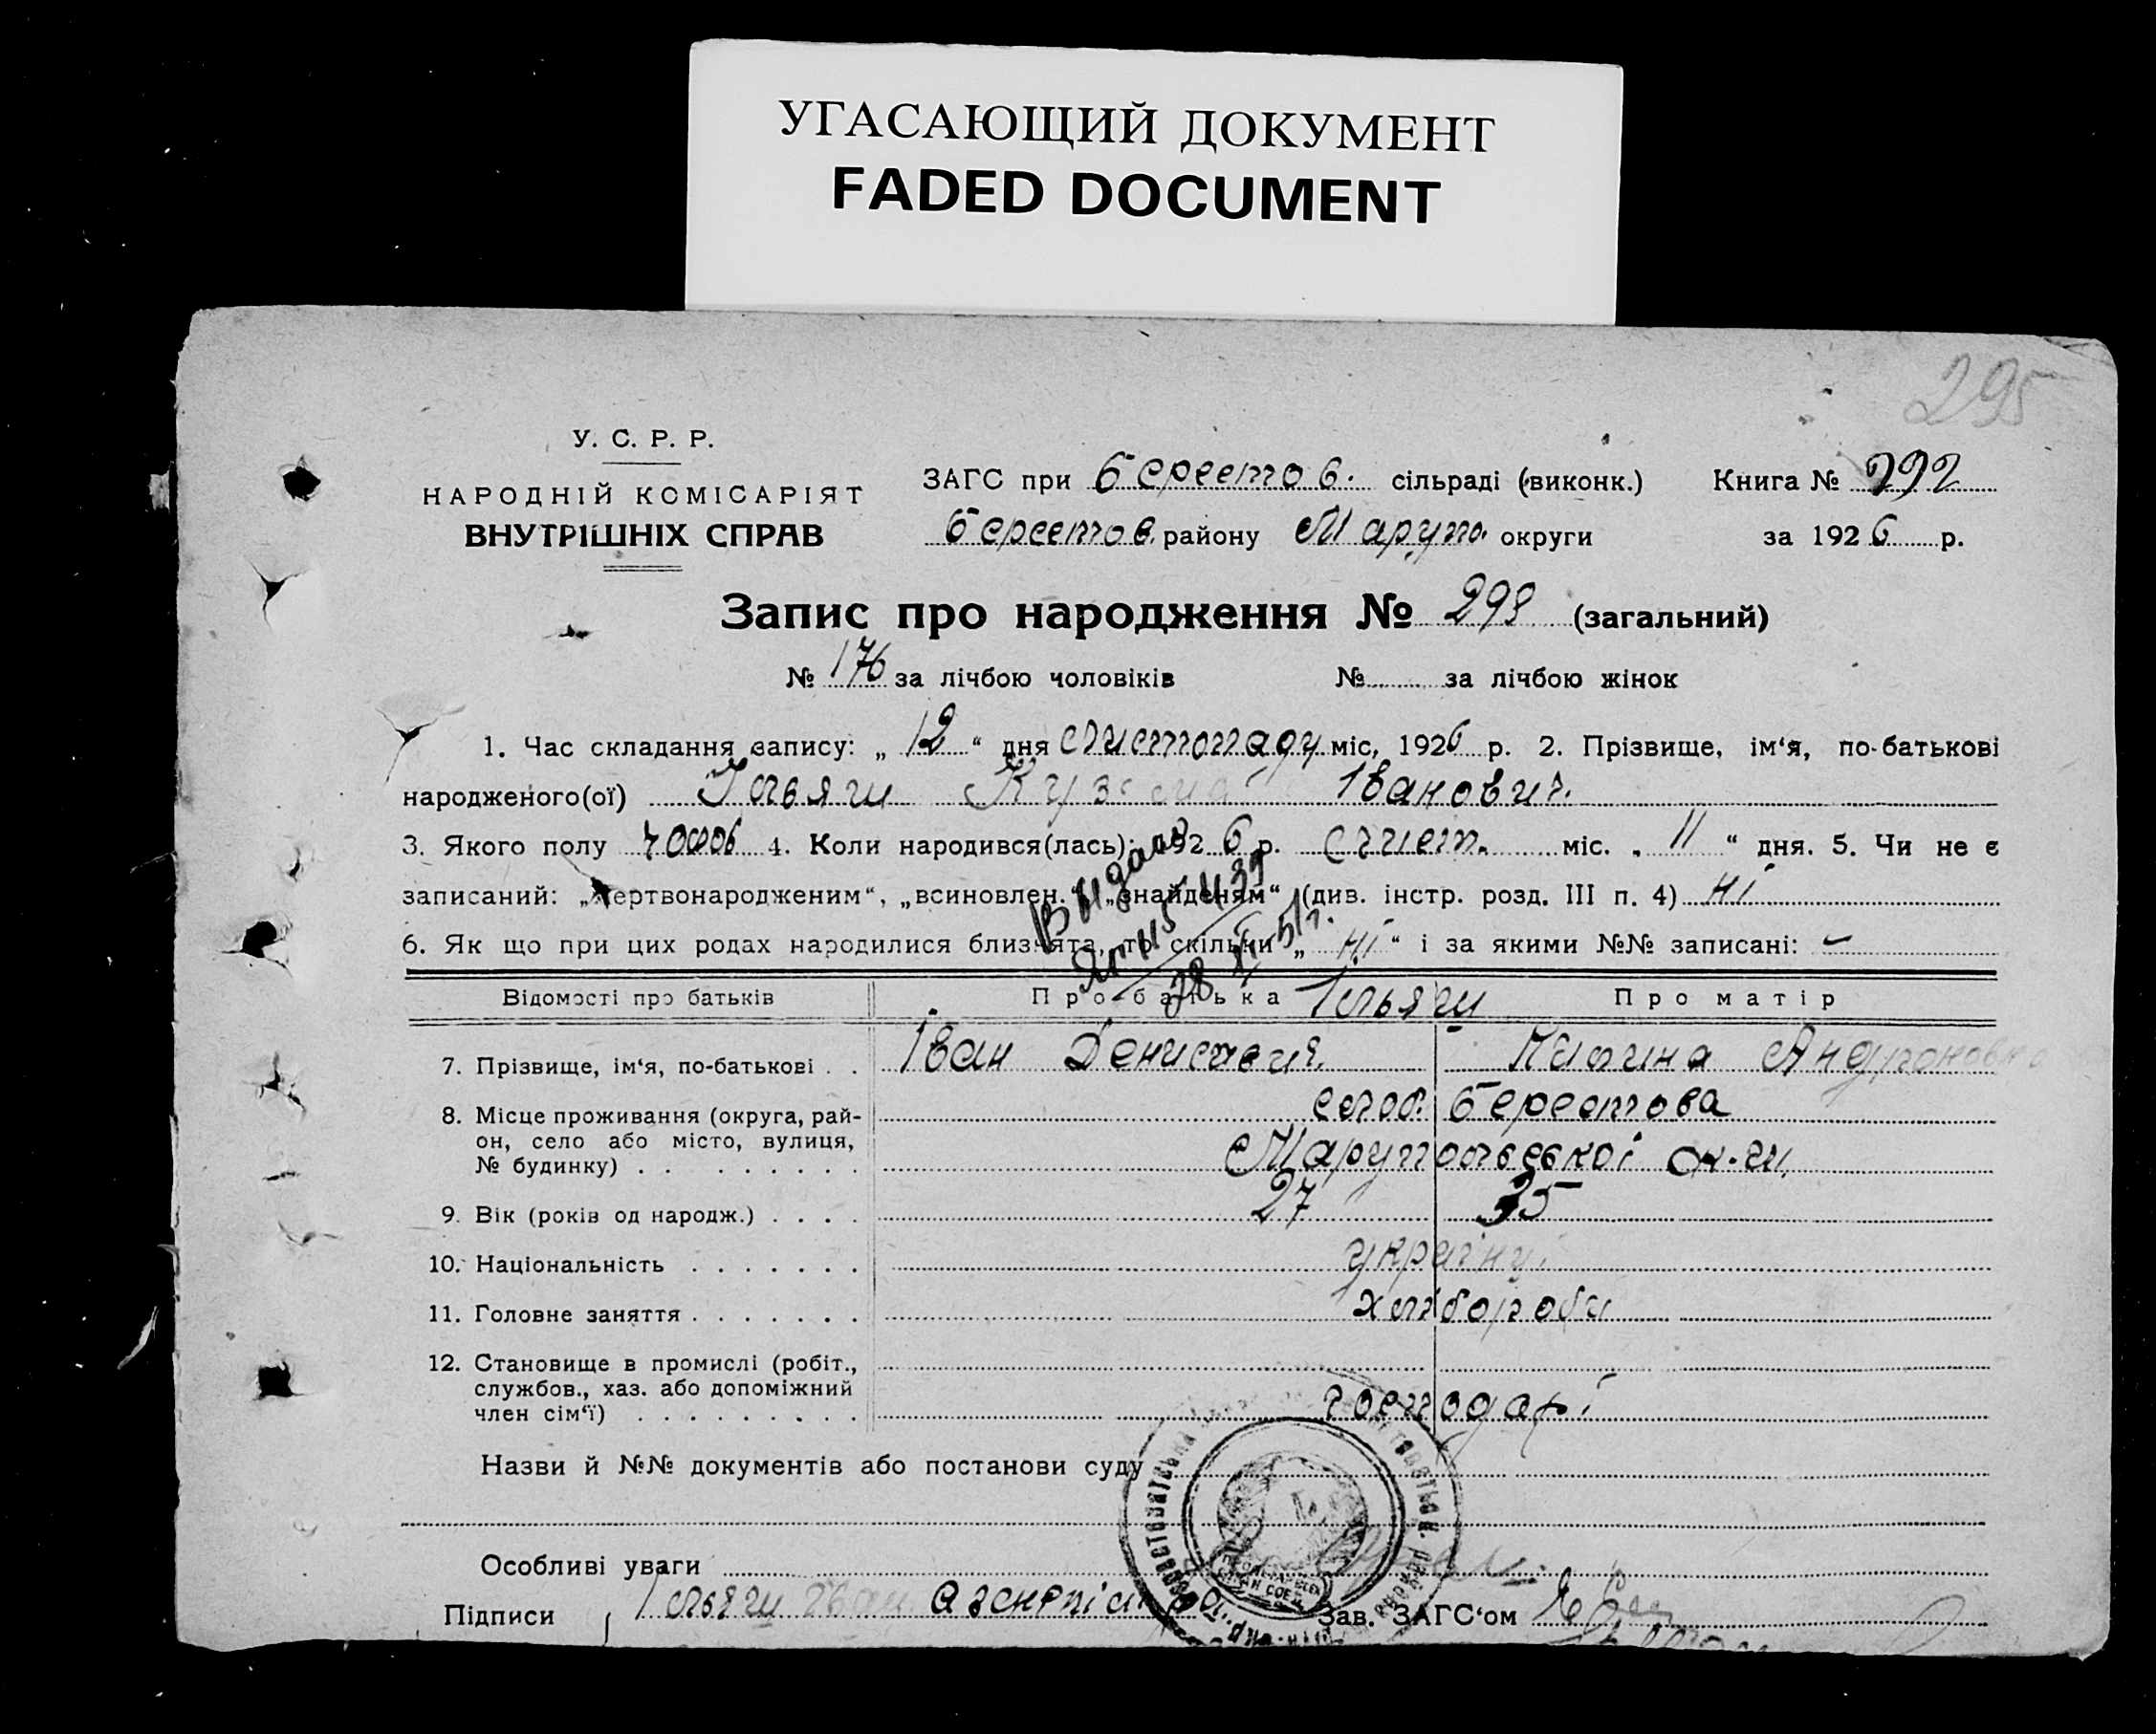 УГАСАЮЩИЙ ДОКУМЕНТ
FADED DOCUMENT
295
У. С. Р. Р.
НАРОДНІЙ КОМІСАРІЯТ
ВНУТРІШНІХ СПРАВ
ЗАГС при Берестов. сільраді (виконк.) Книга № 292
Берестов. району Маруп. округи за 1926 р.
Запис про народження № 298 (загальний)
№ 176 за лічбою чоловіків № за лічбою жінок
1. Час складання запису: „ 12 “ дня листопаду міс. 1926 р. 2. Прізвище, ім‘я, по-батькові
народженого(ої) Ільяш Кузьма Іванович.
3. Якого полу чолов 4. Коли народився(лась): 1926 р. лист. міс. „ 11 “ дня. 5. Чи не є
записаний: „мертвонародженим“, „всиновлен.“, „знайденям“ (див. інстр. розд. III п. 4) ні
6. Як що при цих родах народилися близнята, то скільки „ ні “ і за якими №№ записані: —
Відомості про батьків Про батька Ільяш Про матір
7. Прізвище, ім‘я, по-батькові . . Іван Денисович
8. Місце проживання (округа, рай-
он, село або місто, вулиця,
№ будинку) . . . . . . . . .
слоб. Берестова
Маріупольської ок-ги.
9. Вік (років од народж.) . . . . 27 35
10. Національність . . . . . . . україн.
11. Головне заняття . . . . . . . хлібороби
12. Становище в промислі (робіт.,
службов., хаз. або допоміжний
член сім‘ї) . . . . . . . . .
господарі
Назви й №№ документів або постанови суду
Особливі уваги
Підписи Ільяш Іван Зав. ЗАГС‘ом